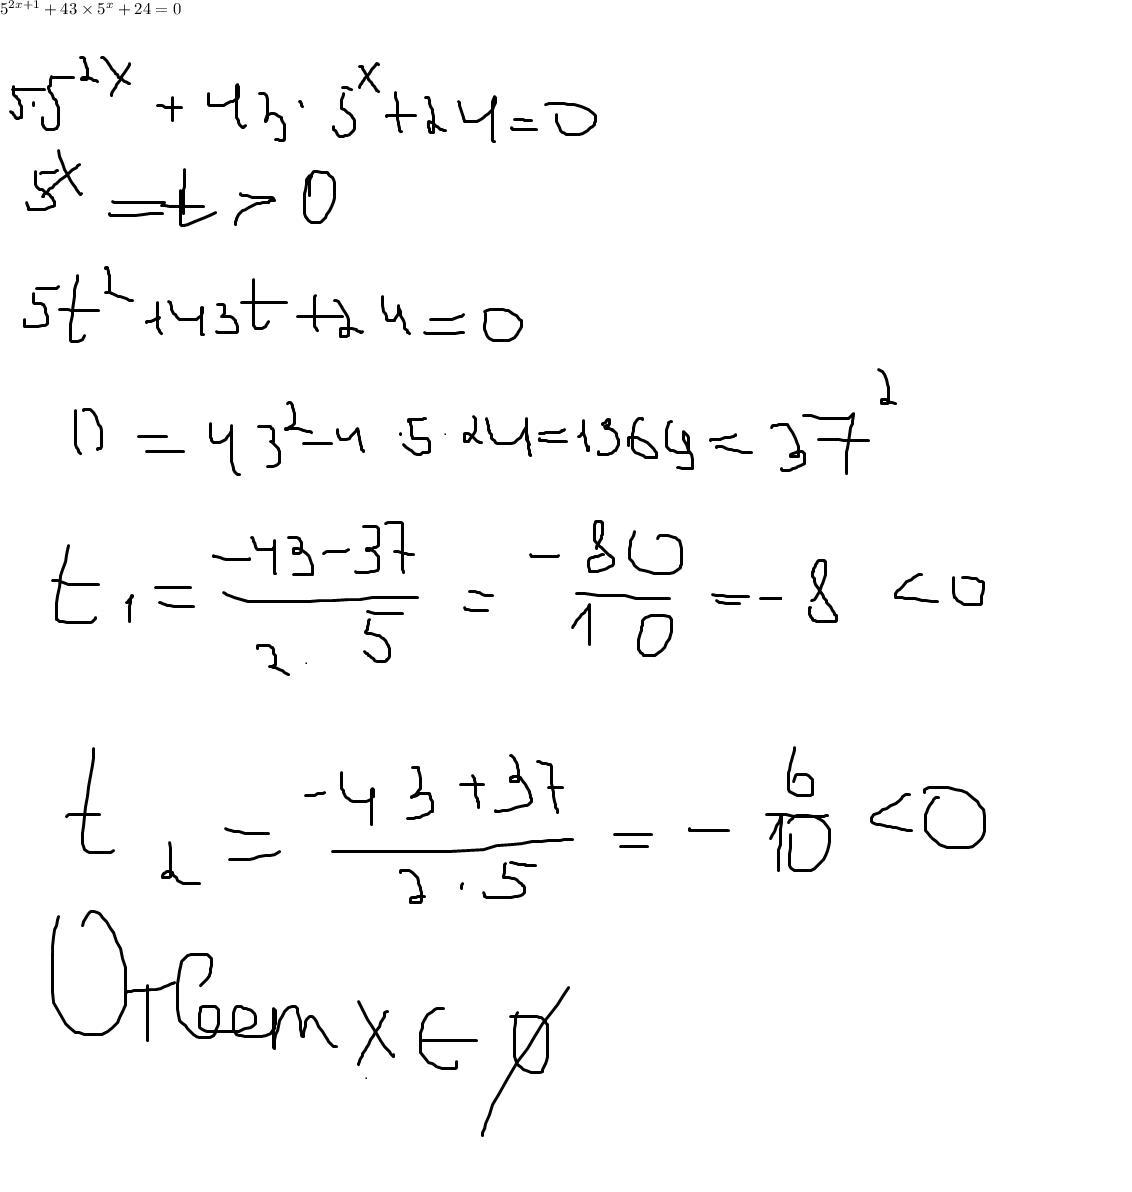 5^{2x+1} + 43 × 5^x + 24 = 0
5·5^{2x} + 43 · 5^x + 24 = 0
5^x = t > 0
5t^2 + 43t + 24 = 0
D = 43^2 - 4 · 5 · 24 = 1369 = 37^2
t_1 = \frac{-43-37}{2 · 5} = \frac{-80}{10} = -8 < 0
t_2 = \frac{-43+37}{2 · 5} = -\frac{6}{10} < 0
Ответ x ∈ ∅